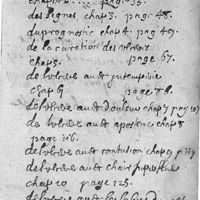 chapitre .... page 35.
des signes chap 3. page 48.
du prognostic chap 4. page 49.
de la curation des ulceres
chap 5. page 67.
de l'ulcere auec intemperie
chap 6 page 78.
de l'ulcere auec douleur chap 7 page 107
de l'ulcere auec aposteme chap 8
page 116.
de l'ulcere auec contusion chap 9 p 119
de l'ulcere auec chair superflue
chap 10 page 125.
de l'ulcere auec